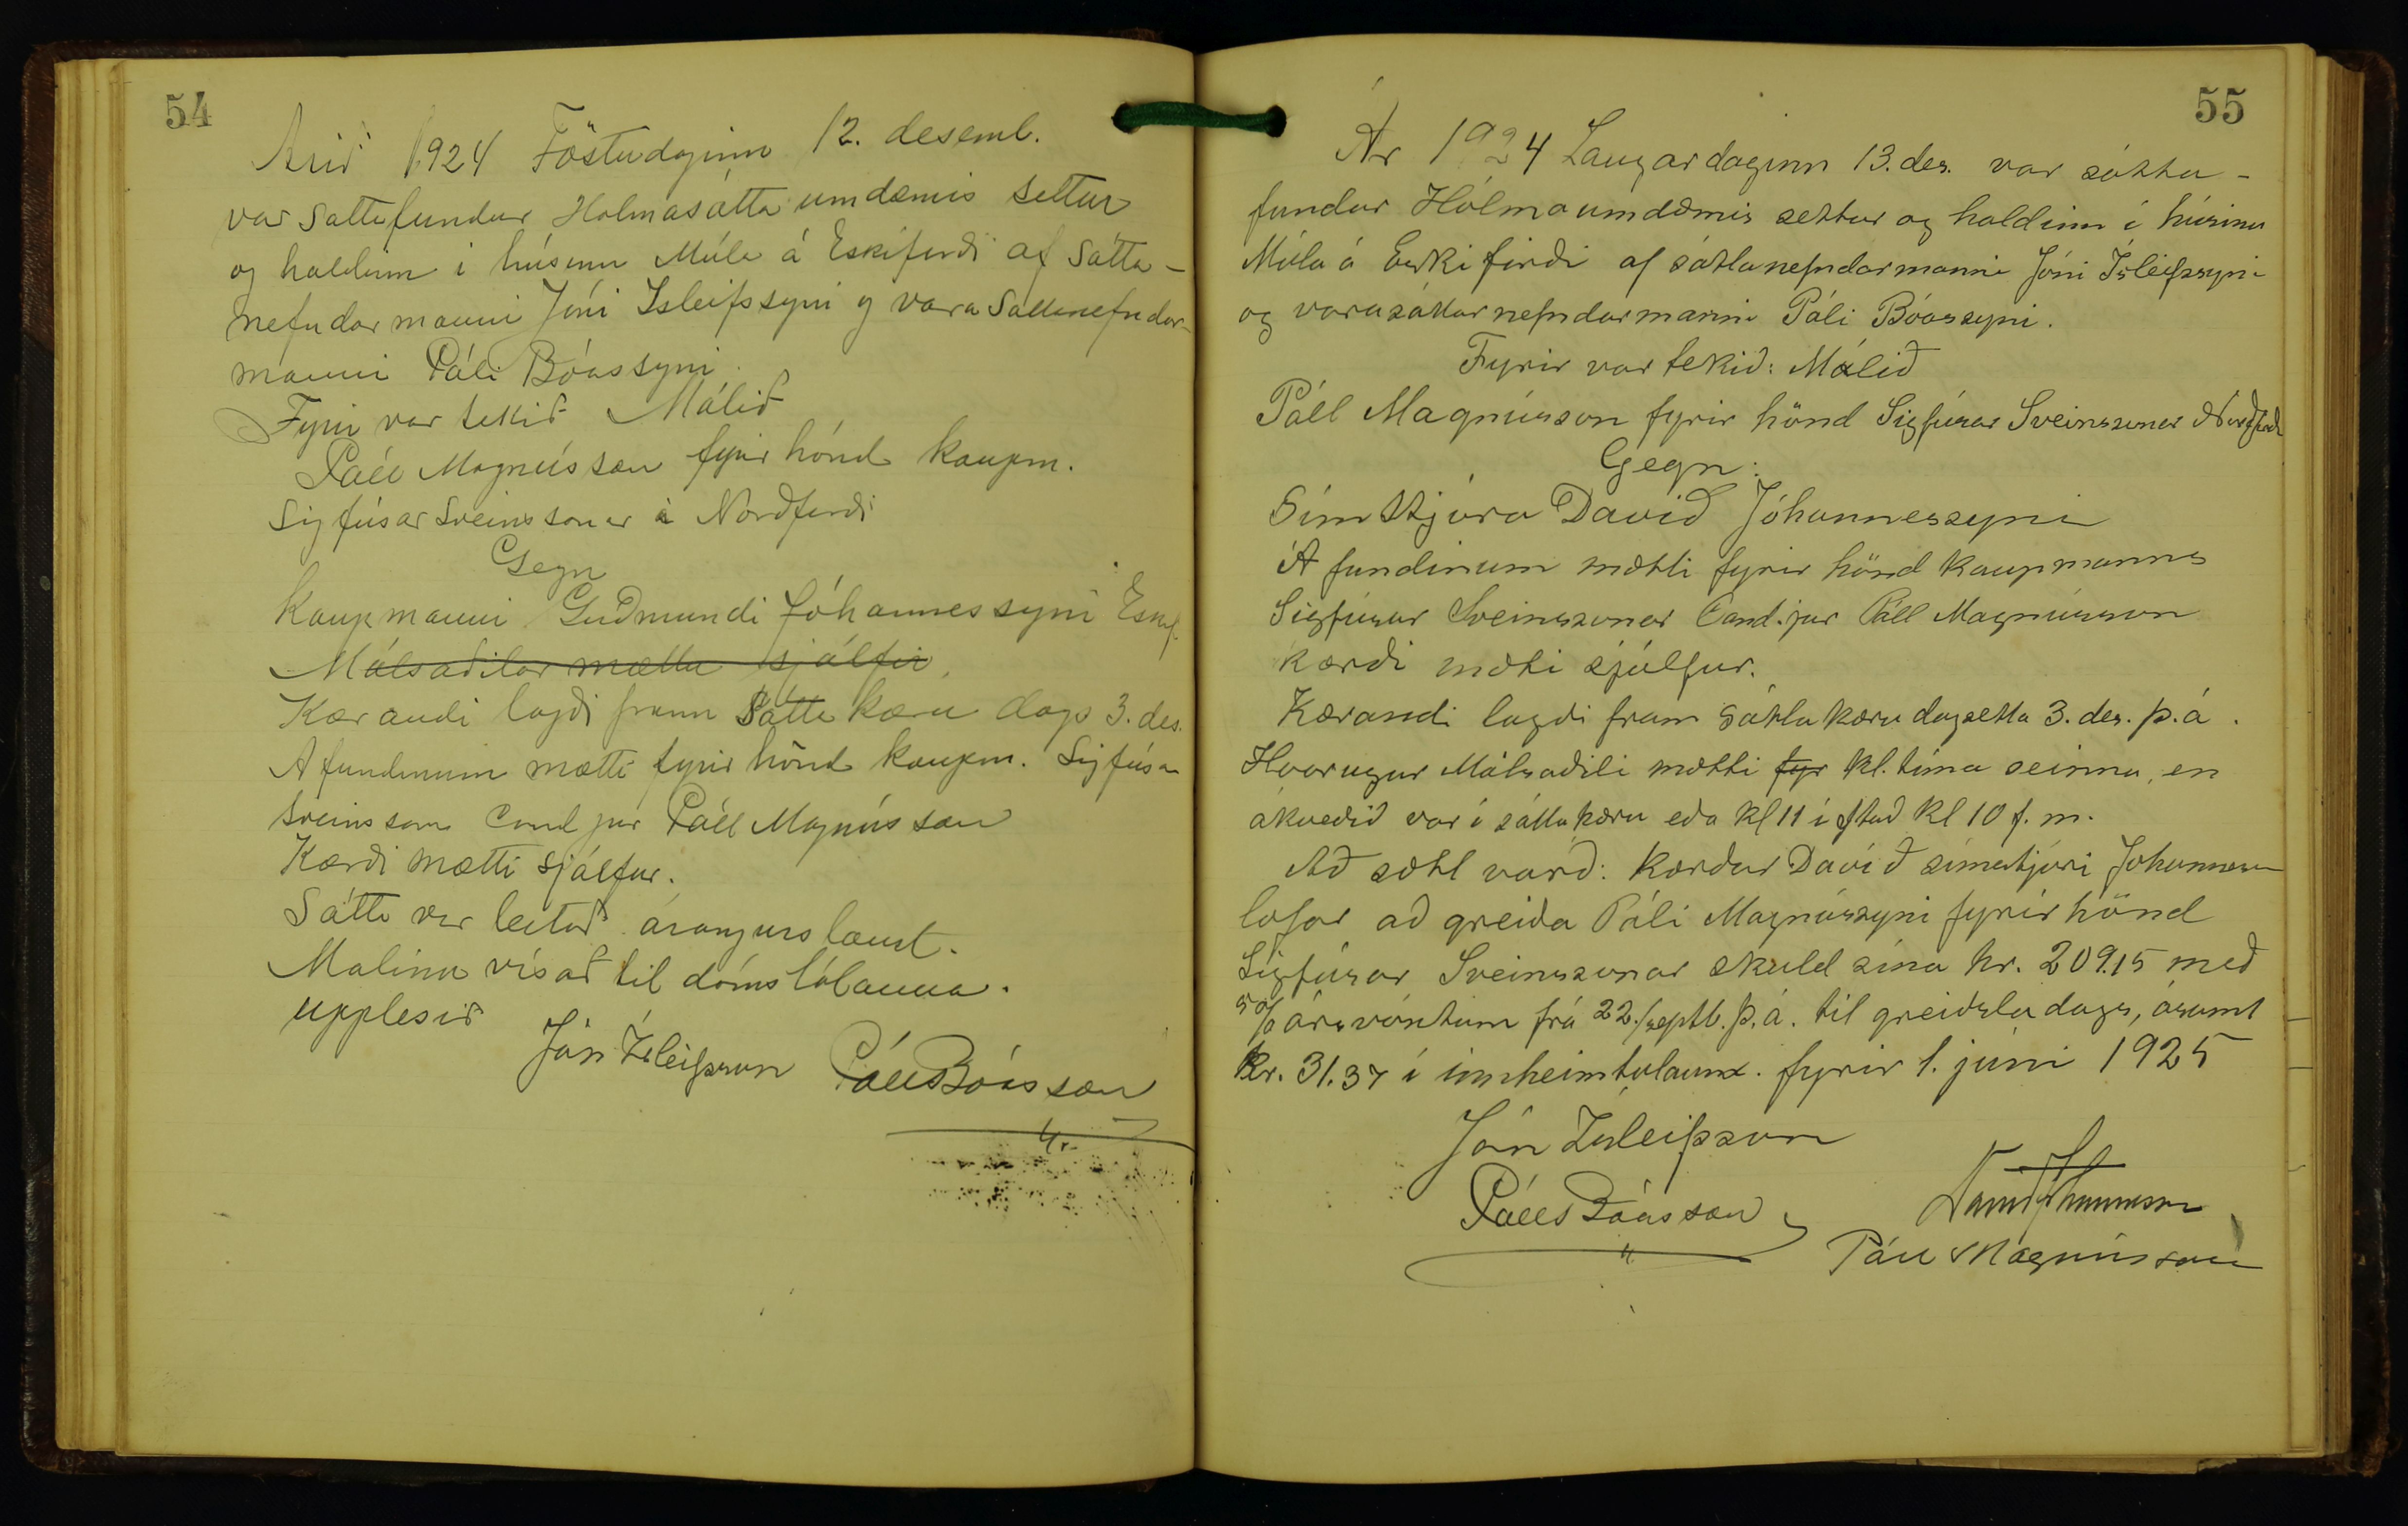 54
Árið 1924 Föstudaginn 12. desemb.
var Sáttafundur Hólmasátta umdæmis settur
og haldinn i húsinu Múla á Eskifirði af Sátta-
nefndarmanni Jóni Isleifssyni og vara Sáttanefndar-
manni Páli Bóassyni.
Fyrir var tekið Málið
Páll Magnússon fyrir hönd kaupm.
Sigfúsar Sveinssonar á Norðfirði
Gegn
Kaupmanni Guðmundi Jóhannessyni Eskf.
Málsaðilar mættu sjálfir.
Kærandi lagði fram Sátta kæru dags 3. des.
A fundinum mætti fyrir hönd kaupm. Sigfúsar
Sveinssonar Cand jur Páll Magnússon
Kærði mætti sjálfur.
Sátta var leitað árangurslaust.
Malinu vísað til dómstólanna.
upplesið
Jón Ísleifsson Páll Bóasson
55
Ár 1924 Laugardaginn 13. des. var sátta-
fundur Hólmaumdæmis settur og haldinn i húsinu
Múla á Eskifirði af sáttanefndarmanni Jóni Ísleifssyni
og varasáttarnefndarmanni Páli Bóassyni.
Fyrir var tekið: Málið
Páll Magnússon fyrir hönd Sigfúsar Sveinssonar Norðfirði
Gegn:
Símstjóra Davið Jóhannessyni
Á fundinum mætti fyrir hönd Kaupmanns
Sigfúsar Sveinssonar Cand. jur Páll Magnússon
kærði mætti sjálfur.
Kærandi lagði fram sáttakæru dagsetta 3. des. þ.á.
Hvorugur Málsaðili mætti fyr kl. tíma seinna, en
ákveðið var í sáttakæru eða kl 11 í stað kl 10 f.m.
Að sætt varð: Kærður Davíð símastjóri Johannesson
lofar að greiða Páli Magnússyni fyrir hönd
Sigfúsar Sveinssonar skuld sína kr. 209.15 með
5% ársvöxtum frá 22. septb. þ.á. til greiðsludags, ásamt
kr. 31.37 í innheimtulaun. fyrir 1. júni 1925
Jón Ísleifsson
Páll Bóasson
Davíð Jóhannesson
Páll Magnússon